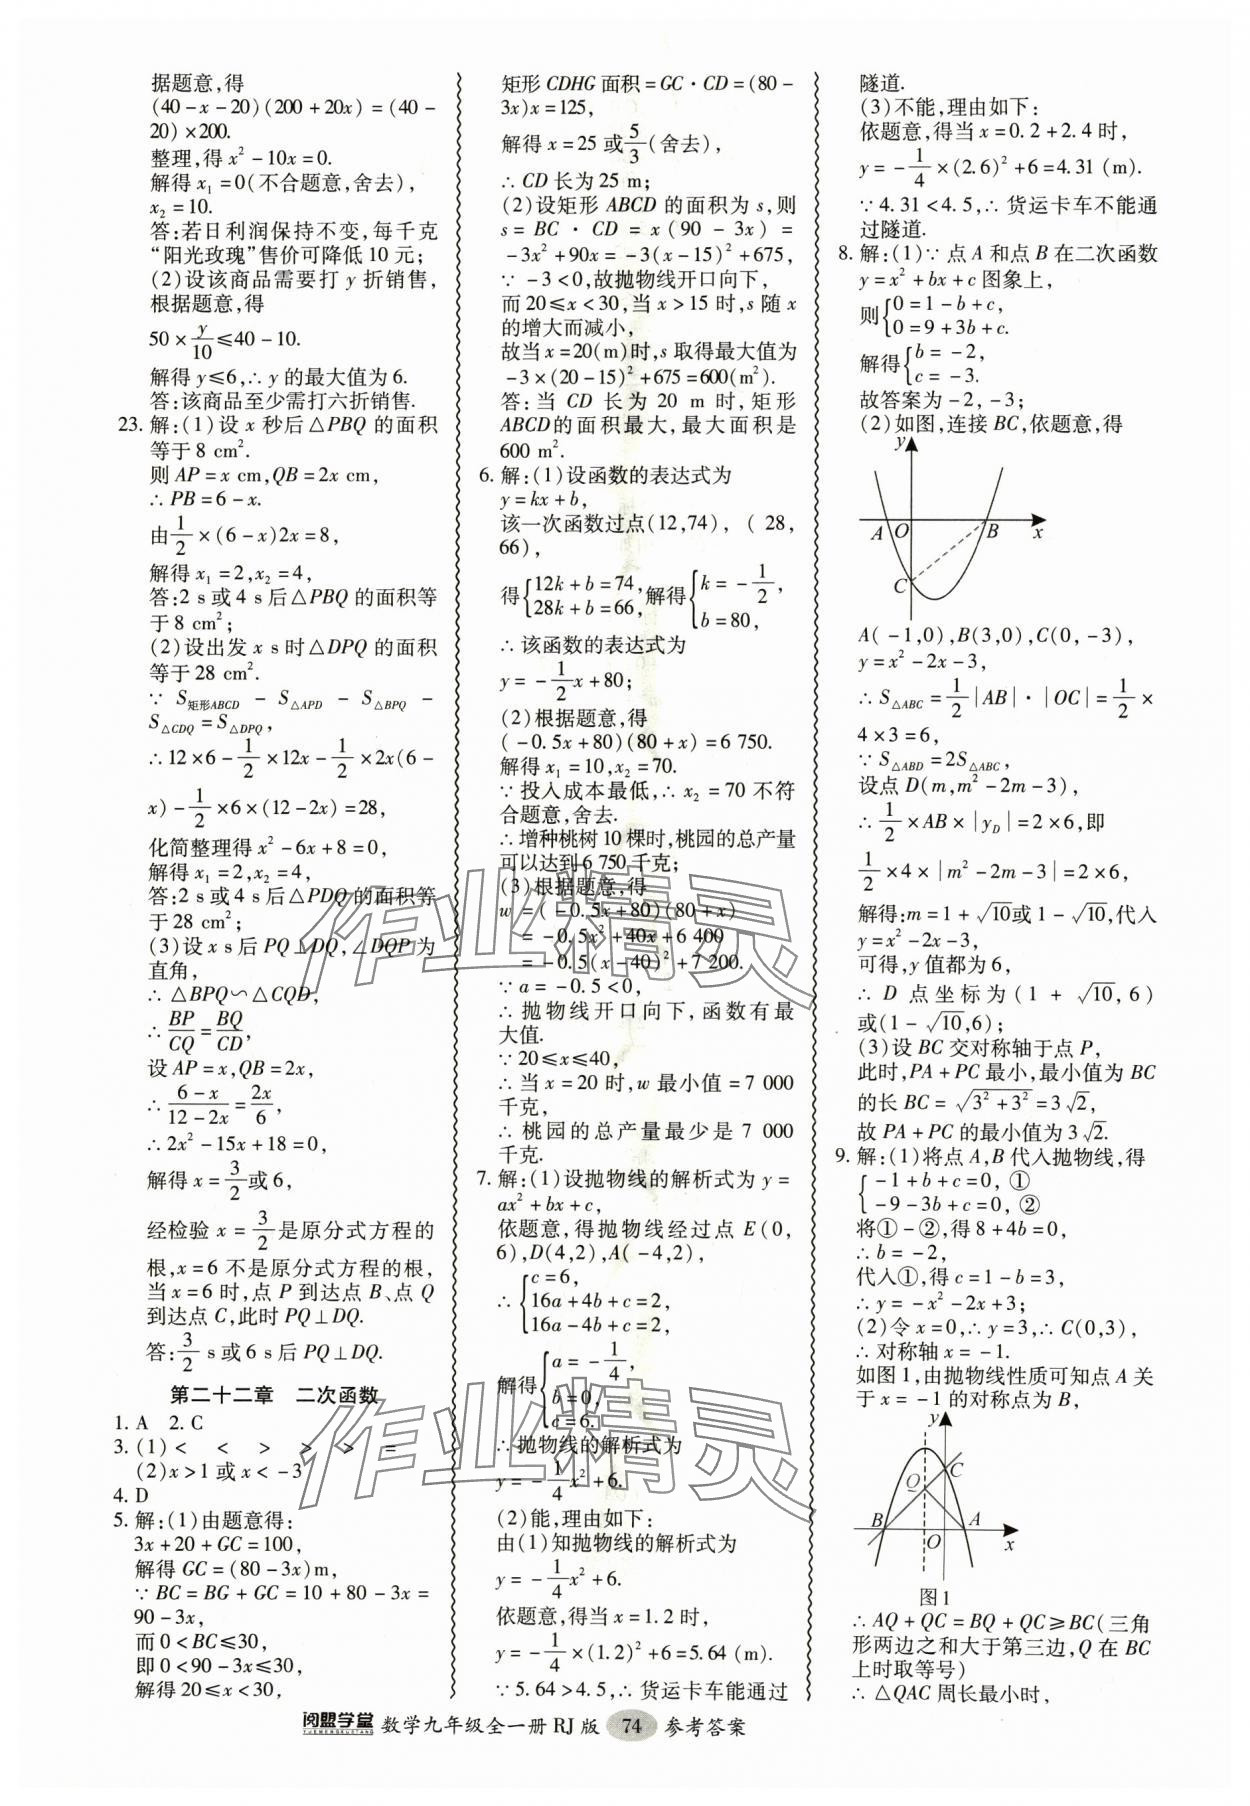 据题意,得
(40-x-20)(200+20x)=(40-
20)×200.
整理,得x²-10x=0.
解得x₁=0(不合题意,舍去),
x₂=10.
答:若日利润保持不变,每千克
“阳光玫瑰”售价可降低10元;
(2)设该商品需要打y折销售,
根据题意,得
50×y/10≤40-10.
解得y≤6,∴y的最大值为6.
答:该商品至少需打六折销售.
23.解:(1)设x秒后△PBQ的面积
等于8 cm².
则AP=x cm,QB=2x cm,
∴PB=6-x.
由1/2×(6-x)2x=8,
解得x₁=2,x₂=4,
答:2 s或4 s后△PBQ的面积等
于8 cm²;
(2)设出发x s时△DPQ的面积
等于28 cm².
∵S矩形ABCD-S△APD-S△BPQ-
S△CDQ=S△DPQ,
∴12×6-1/2×12x-1/2×2x(6-
x)-1/2×6×(12-2x)=28,
化简整理得x²-6x+8=0,
解得x₁=2,x₂=4,
答:2 s或4 s后△PDQ的面积等
于28 cm²;
(3)设x s后PQ⊥DQ,∠DQP为
直角,
∴△BPQ∽△CQD,
∴BP/CQ=BQ/CD,
设AP=x,QB=2x,
∴(6-x)/(12-2x)=2x/6,
∴2x²-15x+18=0,
解得x=3/2或6,
经检验x=3/2是原分式方程的
根,x=6不是原分式方程的根,
当x=6时,点P到达点B、点Q
到达点C,此时PQ⊥DQ.
答:3/2 s或6 s后PQ⊥DQ.
第二十二章 二次函数
1. A 2. C
3. (1)< < > > > =
(2)x>1或x<-3
4. D
5.解:(1)由题意得:
3x+20+GC=100,
解得GC=(80-3x)m,
∵BC=BG+GC=10+80-3x=
90-3x,
而0<BC≤30,
即0<90-3x≤30,
解得20≤x<30,
矩形CDHG面积=GC·CD=(80-
3x)x=125,
解得x=25或5/3(舍去),
∴CD长为25 m;
(2)设矩形ABCD的面积为s,则
s=BC·CD=x(90-3x)=
-3x²+90x=-3(x-15)²+675,
∵-3<0,故抛物线开口向下,
而20≤x<30,当x>15时,s随x
的增大而减小,
故当x=20(m)时,s取得最大值为
-3×(20-15)²+675=600(m²).
答:当CD长为20 m时,矩形
ABCD的面积最大,最大面积是
600 m².
6.解:(1)设函数的表达式为
y=kx+b,
该一次函数过点(12,74),(28,
66),
得{12k+b=74, 28k+b=66,解得{k=-1/2, b=80,
∴该函数的表达式为
y=-1/2x+80;
(2)根据题意,得
(-0.5x+80)(80+x)=6 750.
解得x₁=10,x₂=70.
∵投入成本最低,∴x₂=70不符
合题意,舍去.
∴增种桃树10棵时,桃园的总产量
可以达到6 750千克;
(3)根据题意,得
w=(-0.5x+80)(80+x)
=-0.5x²+40x+6 400
=-0.5(x-40)²+7 200.
∵a=-0.5<0,
∴抛物线开口向下,函数有最
大值.
∵20≤x≤40,
∴当x=20时,w最小值=7 000
千克,
∴桃园的总产量最少是7 000
千克.
7.解:(1)设抛物线的解析式为y=
ax²+bx+c,
依题意,得抛物线经过点E(0,
6),D(4,2),A(-4,2),
∴{c=6,
16a+4b+c=2,
16a-4b+c=2,
解得{a=-1/4,
b=0,
c=6.
∴抛物线的解析式为
y=-1/4x²+6.
(2)能,理由如下:
由(1)知抛物线的解析式为
y=-1/4x²+6.
依题意,得当x=1.2时,
y=-1/4×(1.2)²+6=5.64 (m).
∵5.64>4.5,∴货运卡车能通过
隧道.
(3)不能,理由如下:
依题意,得当x=0.2+2.4时,
y=-1/4×(2.6)²+6=4.31 (m).
∵4.31<4.5,∴货运卡车不能通
过隧道.
8.解:(1)∵点A和点B在二次函数
y=x²+bx+c图象上,
则{0=1-b+c,
0=9+3b+c.
解得{b=-2,
c=-3.
故答案为-2,-3;
(2)如图,连接BC,依题意,得
y
A O B x
C
A(-1,0),B(3,0),C(0,-3),
y=x²-2x-3,
∴S△ABC=1/2|AB|·|OC|=1/2×
4×3=6,
∵S△ABD=2S△ABC,
设点D(m,m²-2m-3),
∴1/2×AB×|yD|=2×6,即
1/2×4×|m²-2m-3|=2×6,
解得:m=1+√10或1-√10,代入
y=x²-2x-3,
可得,y值都为6,
∴D点坐标为(1+√10,6)
或(1-√10,6);
(3)设BC交对称轴于点P,
此时,PA+PC最小,最小值为BC
的长BC=√(3²+3²)=3√2,
故PA+PC的最小值为3√2.
9.解:(1)将点A,B代入抛物线,得
{-1+b+c=0,①
-9-3b+c=0,②
将①-②,得8+4b=0,
∴b=-2,
代入①,得c=1-b=3,
∴y=-x²-2x+3;
(2)令x=0,∴y=3,∴C(0,3),
∴对称轴x=-1.
如图1,由抛物线性质可知点A关
于x=-1的对称点为B,
y
C
Q
B A
O x
图1
∴AQ+QC=BQ+QC≥BC(三角
形两边之和大于第三边,Q在BC
上时取等号)
∴△QAC周长最小时,
作业精灵
作业精灵
阅盟学堂 YUEMENGXUETANG 数学九年级全一册 RJ版 74 参考答案